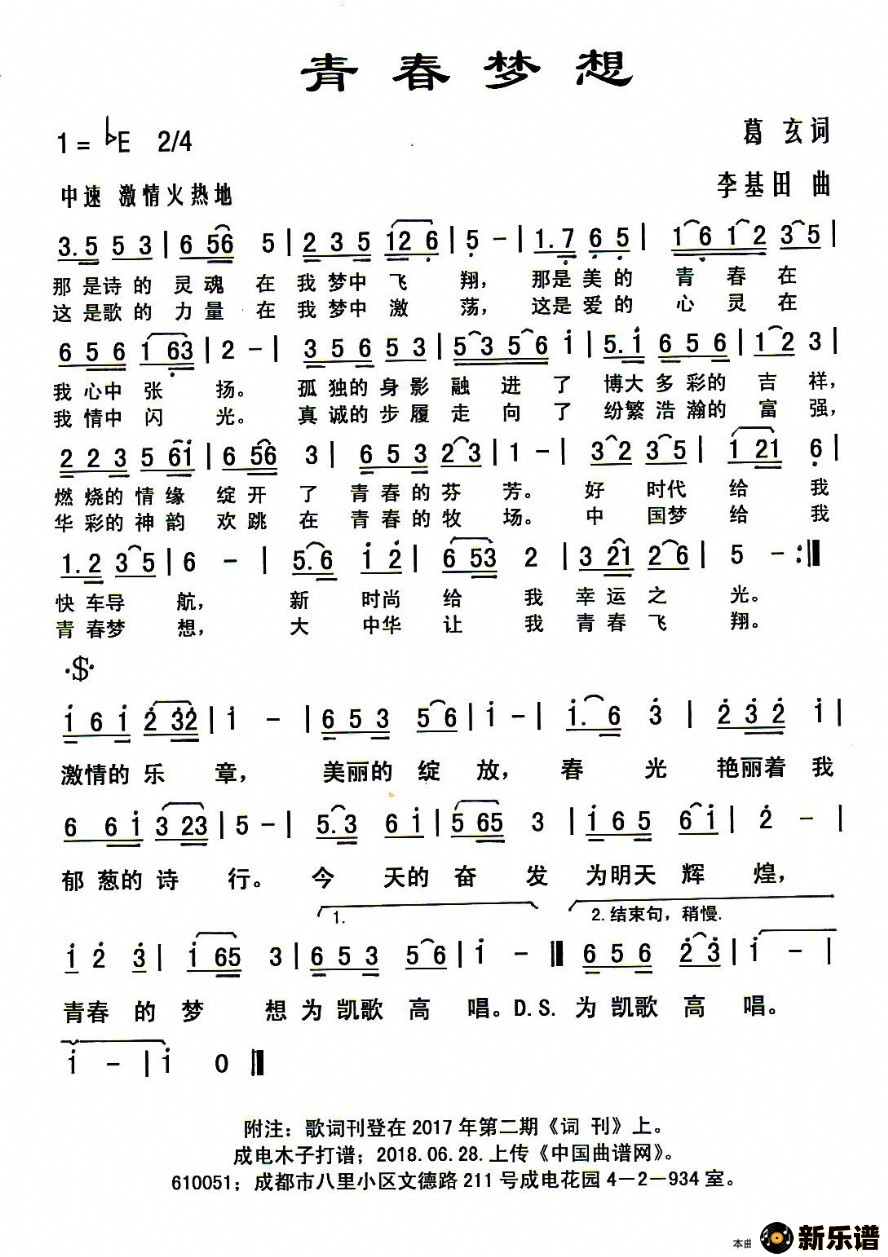 青春梦想
1=♭E 2/4
葛玄词
中速 激情火热地
李基田 曲
3.5 5 3 | 6 56 5 | 2 3 5 12 6 | 5 - | 1.7 6 5 | 1 6 1 2 3 5 |
那是诗的灵魂在我梦中飞翔，那是美的青春在
这是歌的力量在我梦中激荡，这是爱的心灵在
6 5 6 1 63 | 2 - | 3 5 6 5 3 | 5 3 5 5 6 i | 5.i 6 5 6 | 1 2 3 |
我心中张扬。孤独的身影融进了博大多彩的吉祥，
我情中闪光。真诚的步履走向了纷繁浩瀚的富强，
2 2 3 5 6i | 6 56 3 | 6 5 3 2 3 | 1 - | 3 2 3 5 | 1 21 6 |
燃烧的情缘绽开了青春的芬芳。好时代给我
华彩的神韵欢跳在青春的牧场。中国梦给我
1.2 3 5 | 6 - | 5.6 i 2 | 6 53 2 | 3 21 2 6 | 5 - :||
快车导航，新时尚给我幸运之光。
青春梦想，大中华让我青春飞翔。
·$·
i 6 i 2 32 | i - | 6 5 3 5 6 | i - | i. 6 3 | 2 3 2 i |
激情的乐章，美丽的绽放，春光艳丽着我
6 6 i 3 23 | 5 - | 5.3 6 i | 5 65 3 | i 6 5 6 i | 2 - |
郁葱的诗行。今天的奋发为明天辉煌，
1. 2.结束句，稍慢.
i 2 3 | i 65 3 | 6 5 3 5 6 | i - || 6 5 6 2 3 | i - |
青春的梦想为凯歌高唱。D.S.为凯歌高唱。
i - | i 0 ||
附注：歌词刊登在2017年第二期《词 刊》上。
成电木子打谱；2018.06.28.上传《中国曲谱网》。
610051；成都市八里小区文德路211号成电花园4-2-934室。
本曲 新乐谱